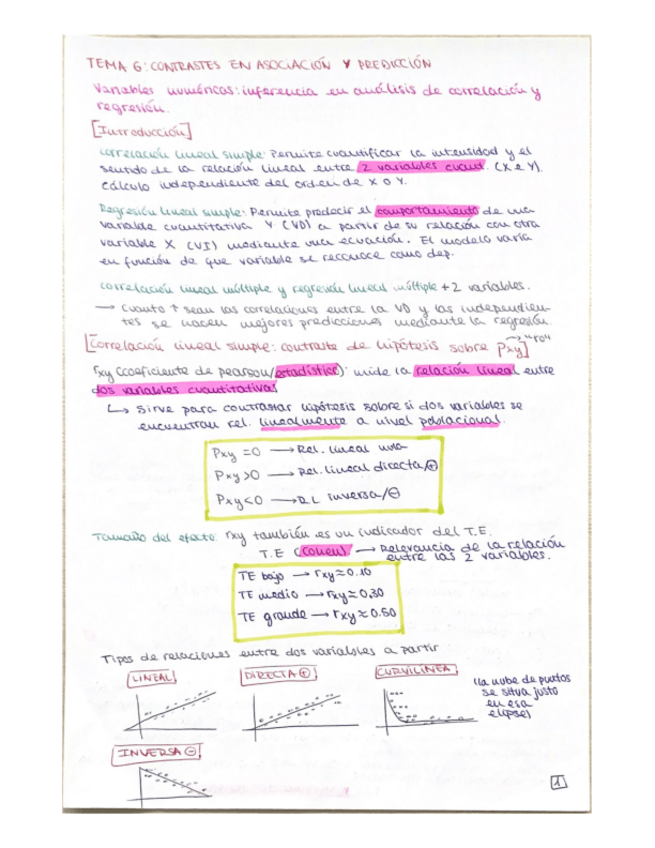 TEMA 6: CONTRASTES EN ASOCIACIÓN Y PREDICCIÓN
Variables numéricas: inferencia en análisis de correlación y
regresión.
[Introducción]
Correlación lineal simple: Permite cuantificar la intensidad y el
sentido de la relación lineal entre 2 variables cuant. (X e Y).
Cálculo independiente del orden de X o Y.
Regresión lineal simple: Permite predecir el comportamiento de una
variable cuantitativa Y (VD) a partir de su relación con otra
variable X (VI) mediante una ecuación. El modelo varía
en función de que variable se reconoce como dep.
Correlación lineal múltiple y regresión lineal múltiple + 2 variables.
→ Cuanto ↑ sean las correlaciones entre la VD y las independien-
tes se hacen mejores predicciones mediante la regresión.
[Correlación lineal simple: contraste de hipótesis sobre Pxy] → "ro"
rxy (coeficiente de pearson/estadístico): mide la relación lineal entre
dos variables cuantitativas
↳ Sirve para contrastar hipótesis sobre si dos variables se
encuentran rel. linealmente a nivel poblacional.
Pxy = 0 → Rel. lineal nula
Pxy > 0 → Rel. lineal directa/⊕
Pxy < 0 → RL inversa/⊖
Tamaño del efecto: rxy también es un indicador del T.E.
T.E (Cohen) → Relevancia de la relación
entre las 2 variables.
TE bajo → rxy ≈ 0.10
TE medio → rxy ≈ 0,30
TE grande → rxy ≈ 0.50
Tipos de relaciones entre dos variables a partir
LINEAL DIRECTA ⊕ CURVILÍNEA
(la nube de puntos
se situa justo
en esa
elipse)
INVERSA ⊖
1